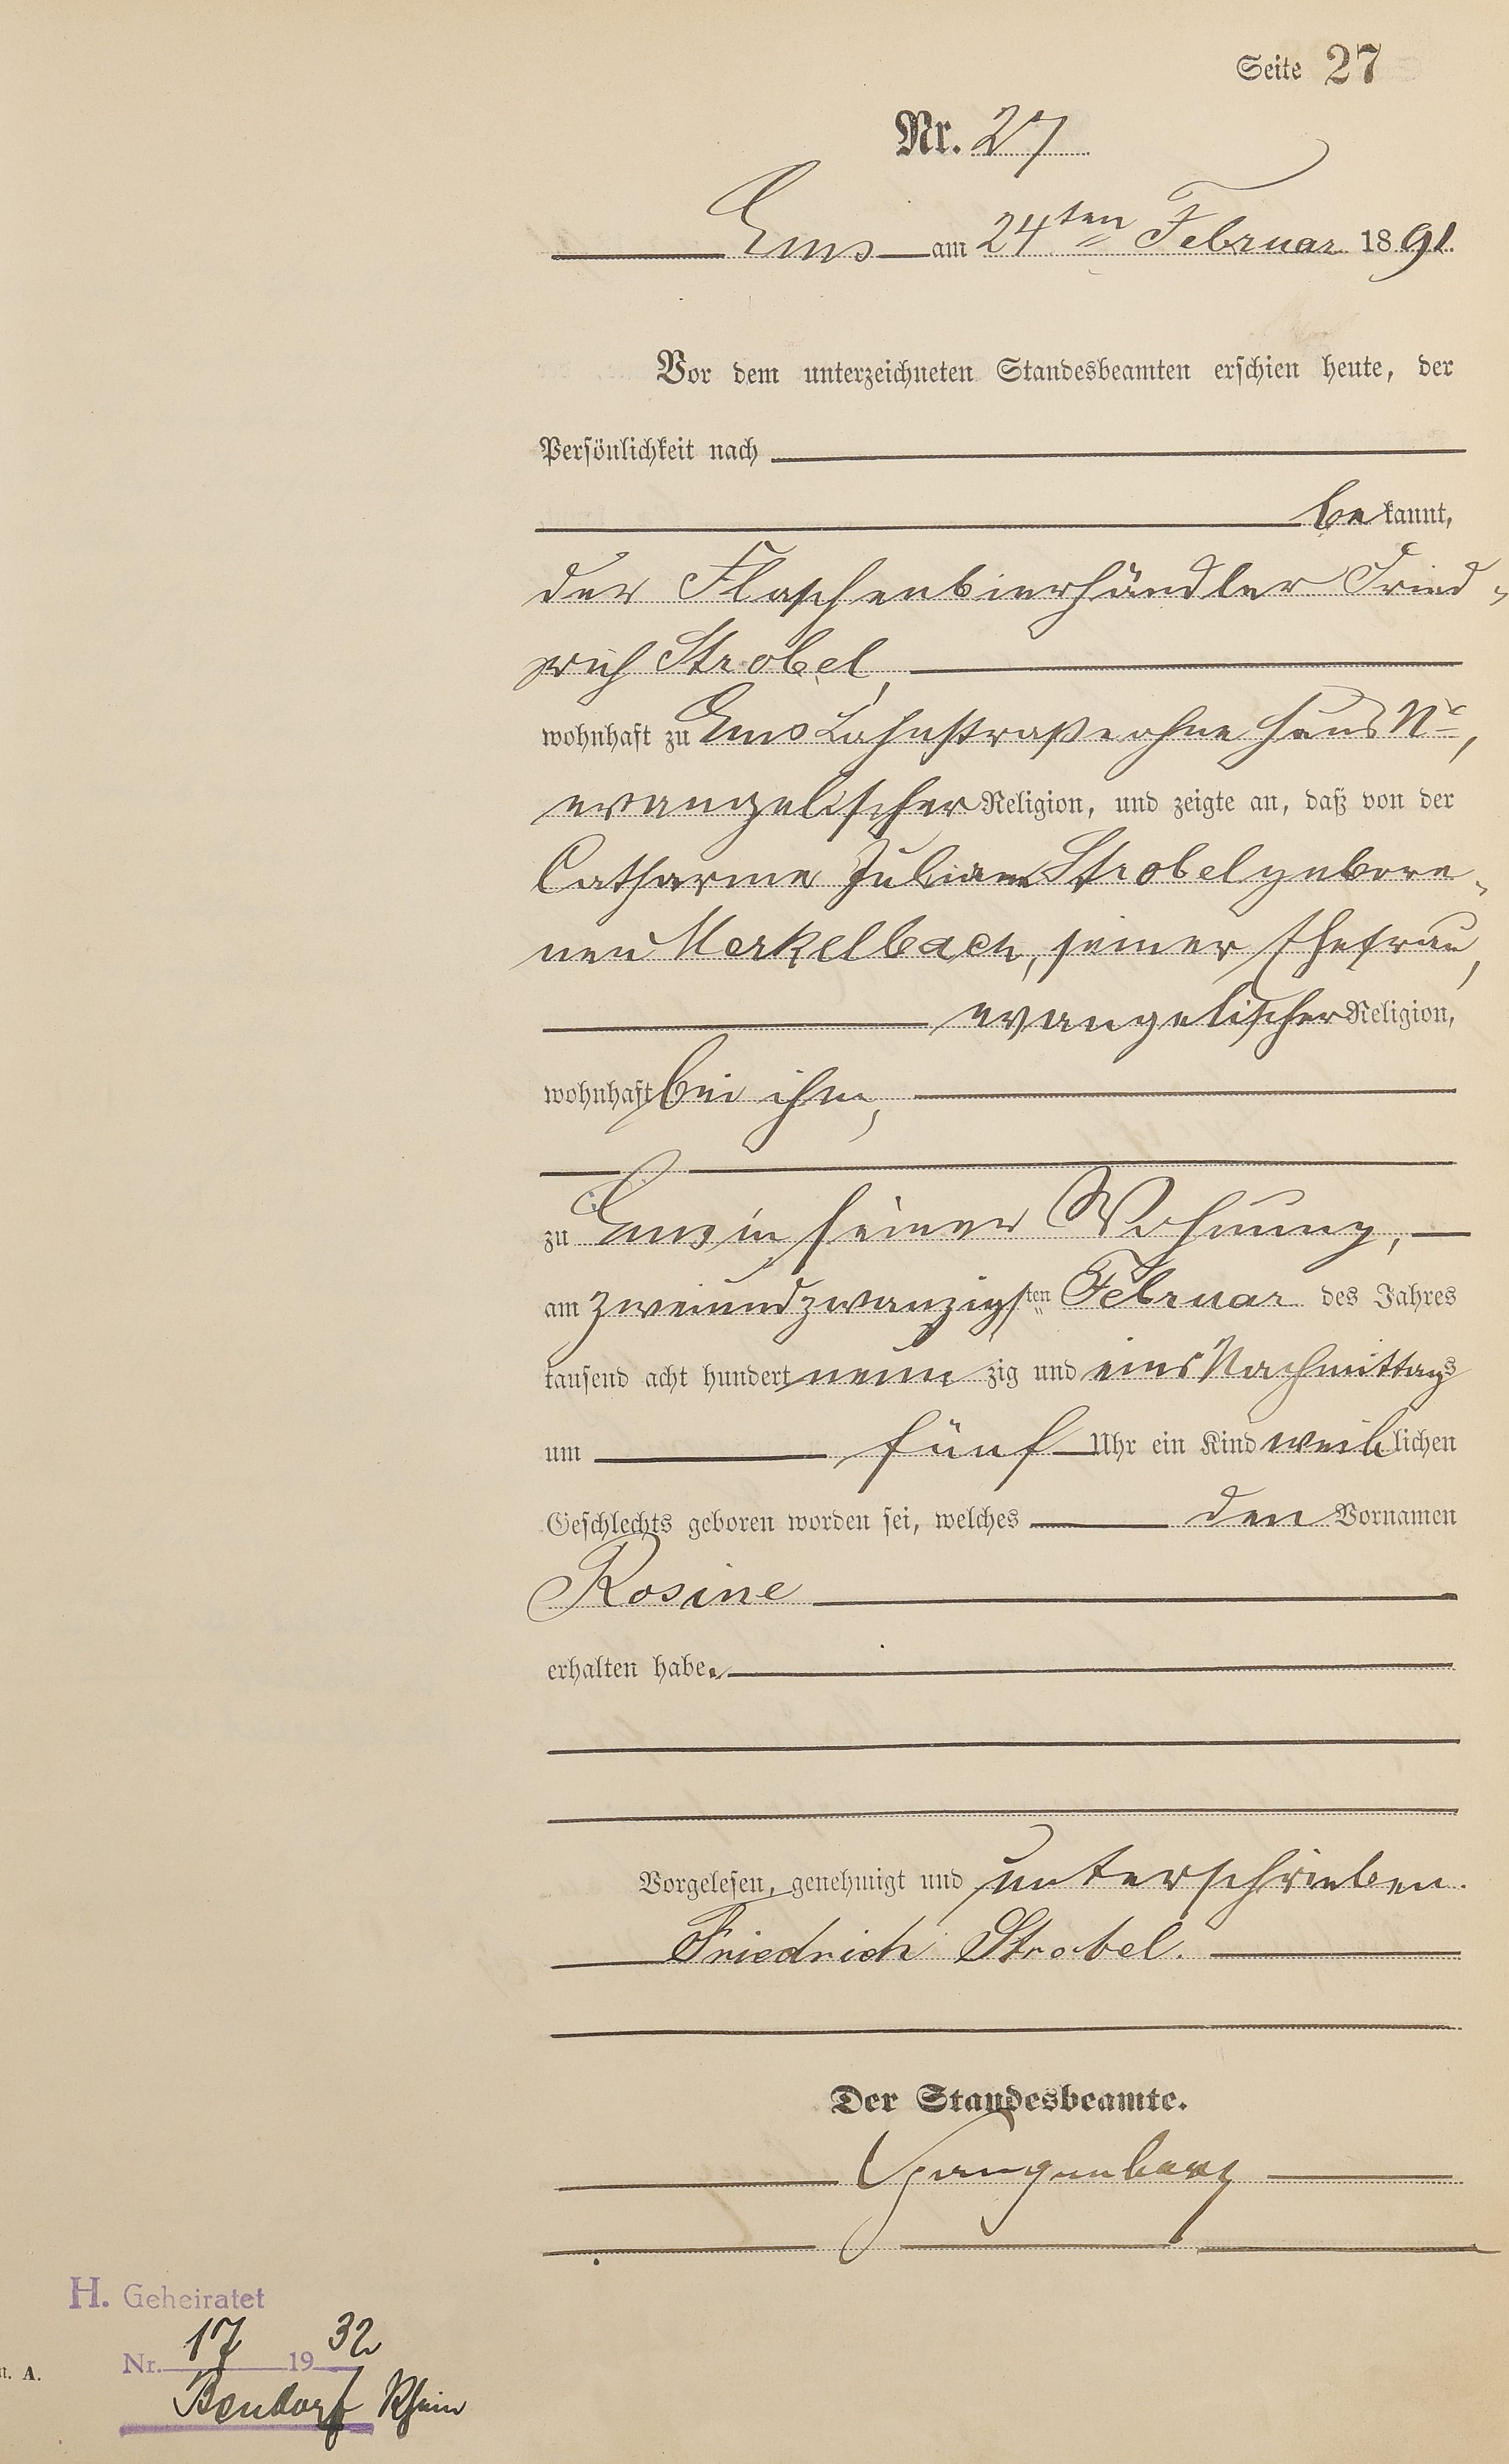 Seite 27
Nr. 27
Ems am 24ten Februar 1891
Vor dem unterzeichneten Standesbeamten erschien heute, der
Persönlichkeit nach
bekannt,
der Flaschenbierhändler Fried-
rich Strobel,
wohnhaft zu Ems Lahnstraße ohne Haus No,
evangelischer Religion, und zeigte an, daß von der
Catharine Juliane Strobel gebore-
nen Merkelbach, seiner Ehefrau,
evangelischer Religion,
wohnhaft bei ihm,
zu Ems in seiner Wohnung,
am zweiundzwanzigsten Februar des Jahres
tausend acht hundert neunzig und eins Nachmittags
um fünf Uhr ein Kind weiblichen
Geschlechts geboren worden sei, welches den Vornamen
Rosine
erhalten habe.
Vorgelesen, genehmigt und unterschrieben.
Friedrich Strobel.
Der Standesbeamte.
H. Geheiratet
Nr. 17 1932
Bendorf Rhein
A.